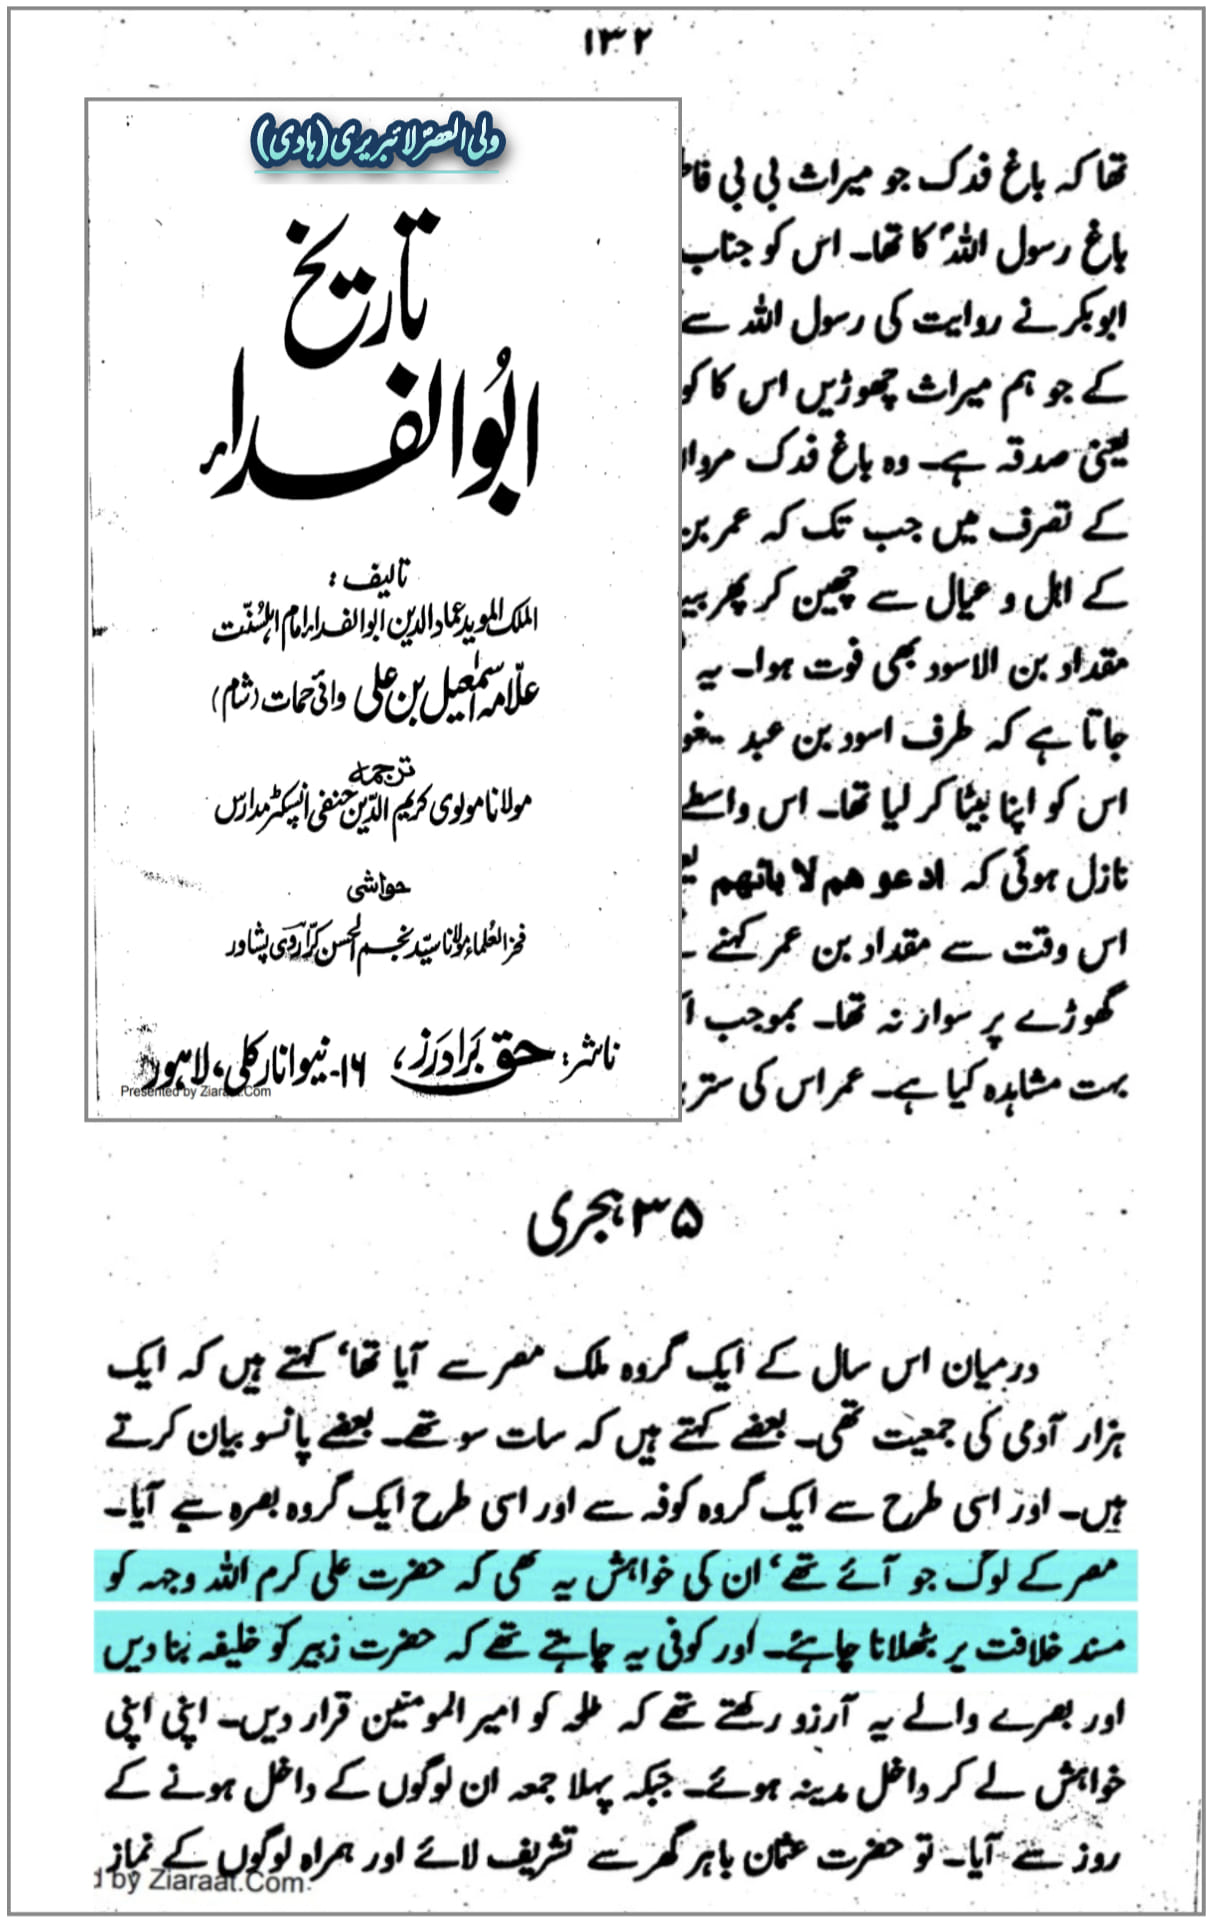 ۱۳۲
ولی العصر لائبریری (ہادی)
تاریخ
ابُوالفداء
تالیف :
الملک المویدعماد الدین ابوالفداء امام اہلسُنّت
علّامہ اسمٰعیل بن علی وائی حمات (شام)
ترجمہ
مولانا مولوی کریم الدّین حنفی انسپکٹر مدارس
حواشی
فخر العُلماء مولانا سیّد نجم الحسن کرّاروی پشاور
ناشر: حق برادرز، ۱۶-نیو انارکلی، لاہور
Presented by Ziaraat.Com
تھا کہ باغ فدک جو میراث بی بی
باغ رسول اللہؐ کا تھا۔ اس کو جناب
ابوبکر نے روایت کی رسول اللہ سے
کے جو ہم میراث چھوڑیں اس کا
یعنی صدقہ ہے۔ وہ باغ فدک
کے تصرف میں جب تک کہ عمر بن
کے اہل و عیال سے چھین کر پھر
مقداد بن الاسود بھی فوت ہوا۔ یہ
جاتا ہے کہ طرف اسود بن عبد
اس کو اپنا بیٹا کر لیا تھا۔ اس واسطے
نازل ہوئی کہ ادعو ھم لا بائھم
اس وقت سے مقداد بن عمر کہنے
گھوڑے پر سوار نہ تھا۔ بموجب
بہت مشاہدہ کیا ہے۔ عمر اس کی ستر
۳۵ ہجری
درمیان اس سال کے ایک گروہ ملک مصر سے آیا تھا، کہتے ہیں کہ ایک
ہزار آدمی کی جمعیت تھی۔ بعضے کہتے ہیں کہ سات سو تھے۔ بعضے پانسو بیان کرتے
ہیں۔ اور اسی طرح سے ایک گروہ کوفہ سے اور اسی طرح ایک گروہ بصرہ سے آیا۔
مصر کے لوگ جو آئے تھے، ان کی خواہش یہ تھی کہ حضرت علی کرم اللہ وجہہ کو
مسند خلافت پر بٹھلانا چاہئے۔ اور کوفی یہ چاہتے تھے کہ حضرت زبیر کو خلیفہ بنا دیں
اور بصرے والے یہ آرزو رکھتے تھے کہ طلحہ کو امیر المومنین قرار دیں۔ اپنی اپنی
خواہش لے کر داخل مدینہ ہوئے۔ جبکہ پہلا جمعہ ان لوگوں کے داخل ہونے کے
روز سے آیا۔ تو حضرت عثمان باہر گھر سے تشریف لائے اور ہمراہ لوگوں کے نماز
d by Ziaraat.Com